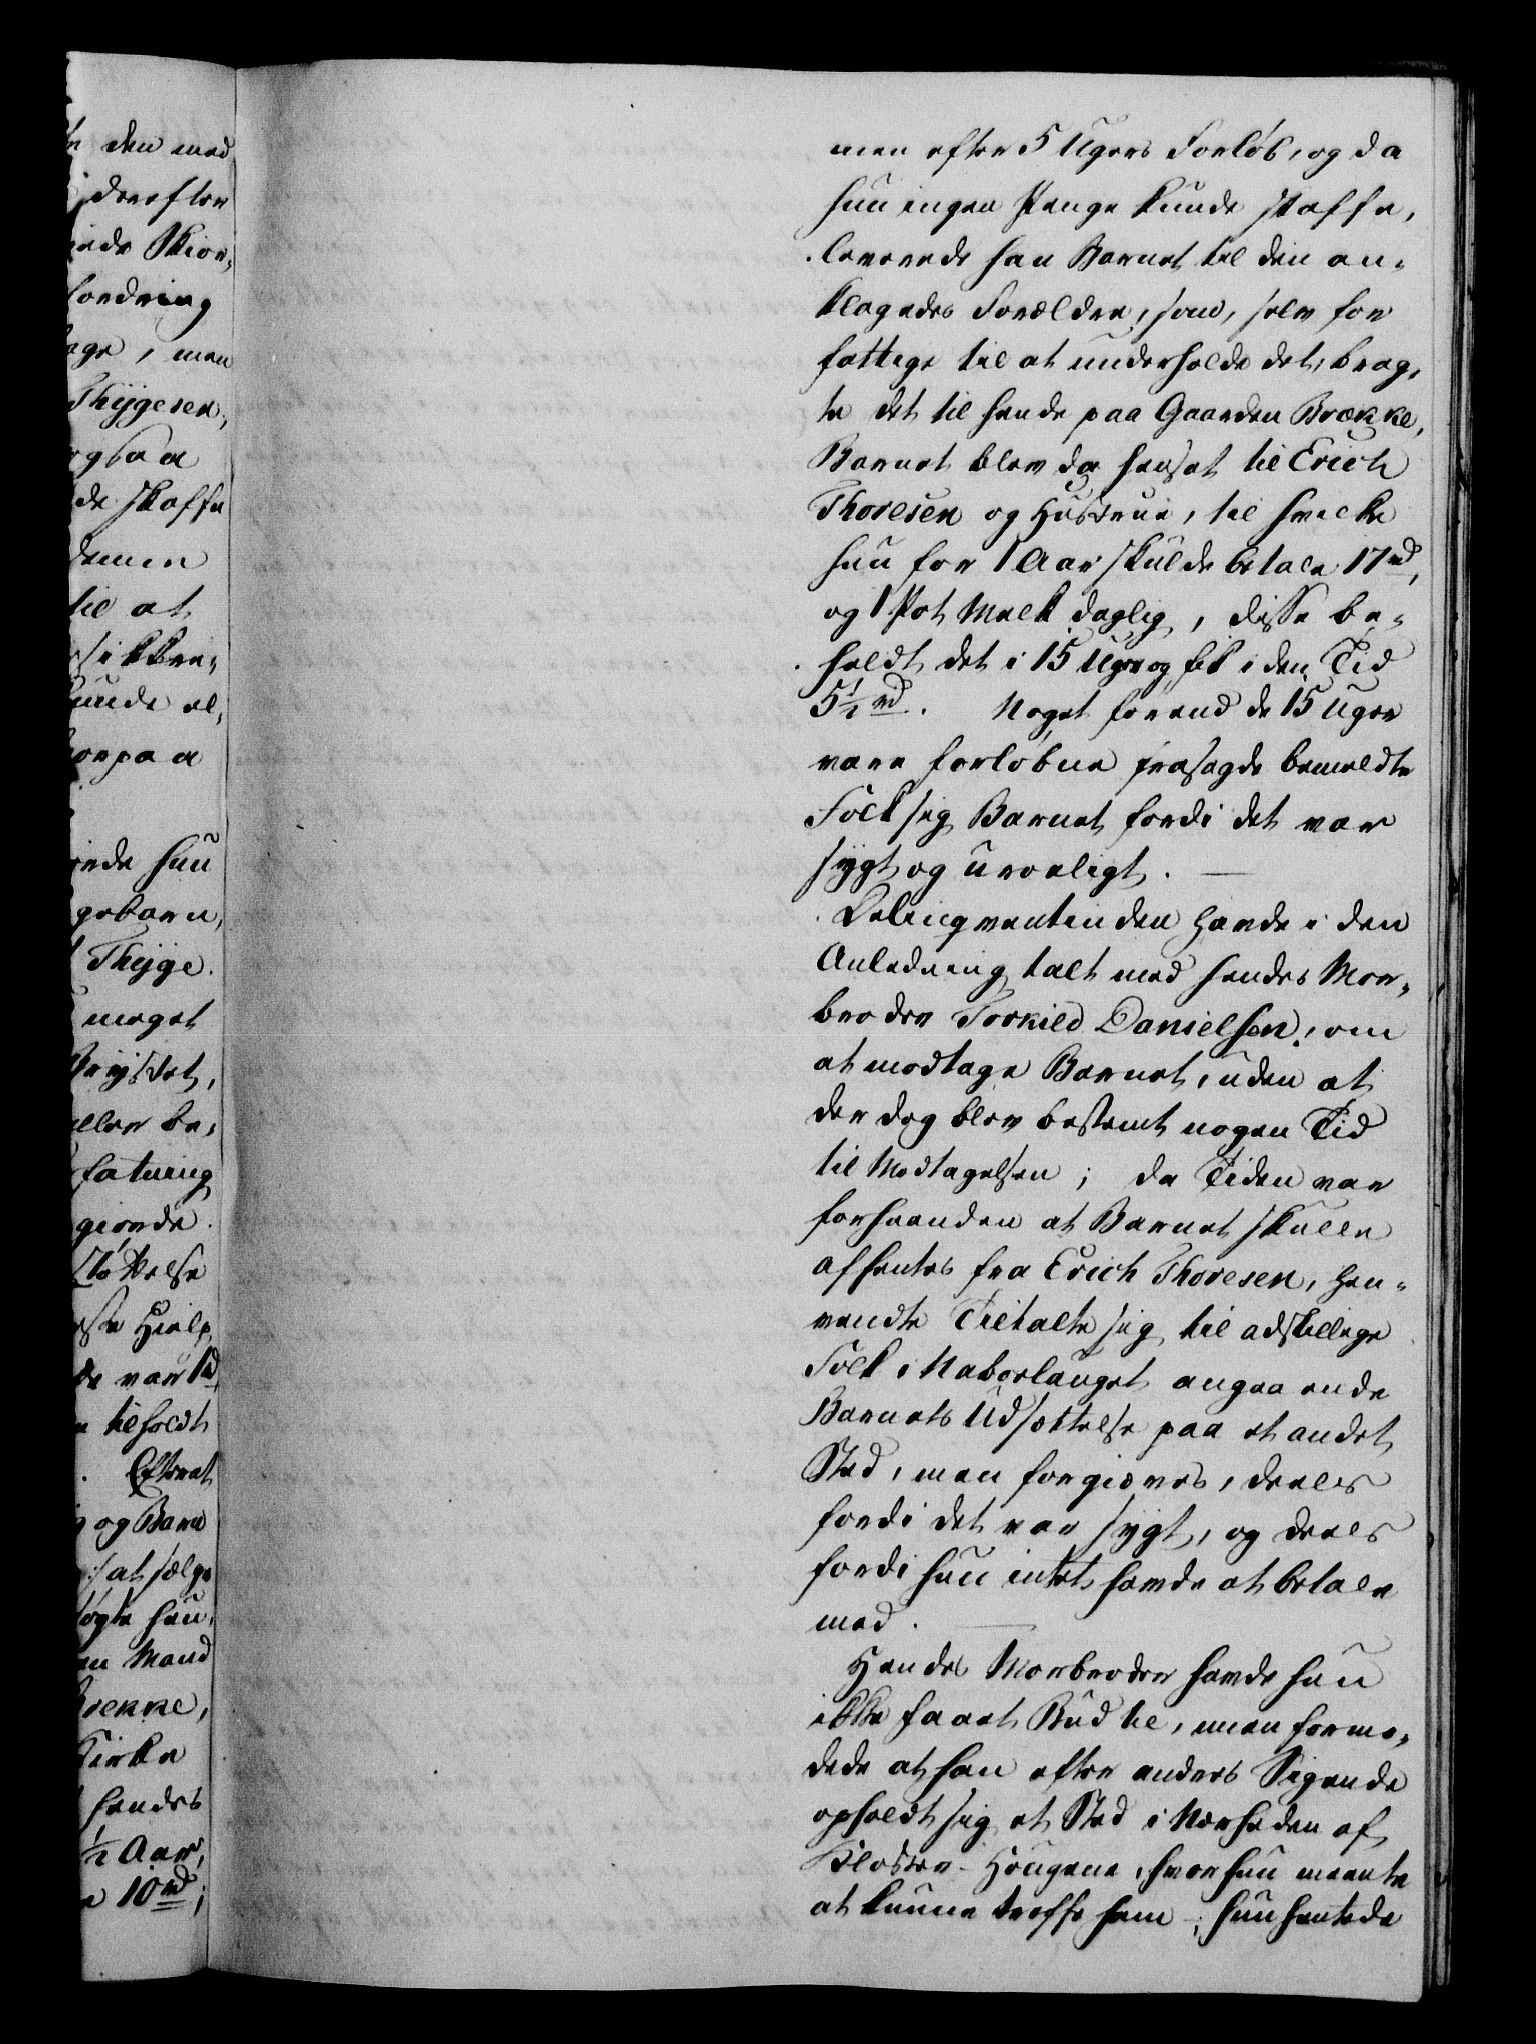 den med
derefter
Skior,
fordring
age, men
Thygesen,
ogsaa
de skaffe
demin
til at
sikkre,
kunde el,
orpaa
rede hun
gebarn,
Thyge.
meget
Brystet,
eller be,
fatning
giorde.
Støttelse
ste Hielp
de var 1 rd
tilholdt
. Efterat
og Barn
at sælge
søgte hun,
en Mand
Brekke,
Kirke
hendes
½ Aar,
10 rd;
men efter 5 Ugers Forløb, og da
hun ingen Penge kunde skaffe,
leverede han Barnet til den an-
klagedes Forældre, som, selv for
fattige til at underholde det, brag-
te det til hende paa Gaarden Brække,
Barnet blev da hensat til Erich
Thoresen og Hustrue, til hvilke
hun for 1 Aar skulde betale 17 rd,
og 1 Pot Melk daglig, disse be-
holdt det i 15 Uger og fik i den Tid
5½ rd. Noget forend de 15 Uger
vare forløbne frasagde bemeldte
Folk sig Barnet fordi det var
sygt og uroeligt.
Delinqventinden havde i den
Anledning talt med hendes Mor-
broder Torkild Danielsen, om
at modtage Barnet, uden at
der dog blev bestemt nogen Tid
til Modtagelsen; da Tiden var
forhaanden at Barnet skulle
afhentes fra Erich Thoresen, hen-
vendte Tiltalte sig til adskillige
Folk i Naborlauget angaaende
Barnets Udsættelse paa et andet
Sted, men forgieves, deels
fordi det var sygt, og deels
fordi hun intet havde at betale
med.
Hendes Morbroder havde hun
ikke faaet Bud til, men formo-
dede at han efter anders Sigende
opholdt sig et Sted i Nærheden af
Kloster-Hougene, hvor hun meente
at kunne treffe ham -; hun hentede